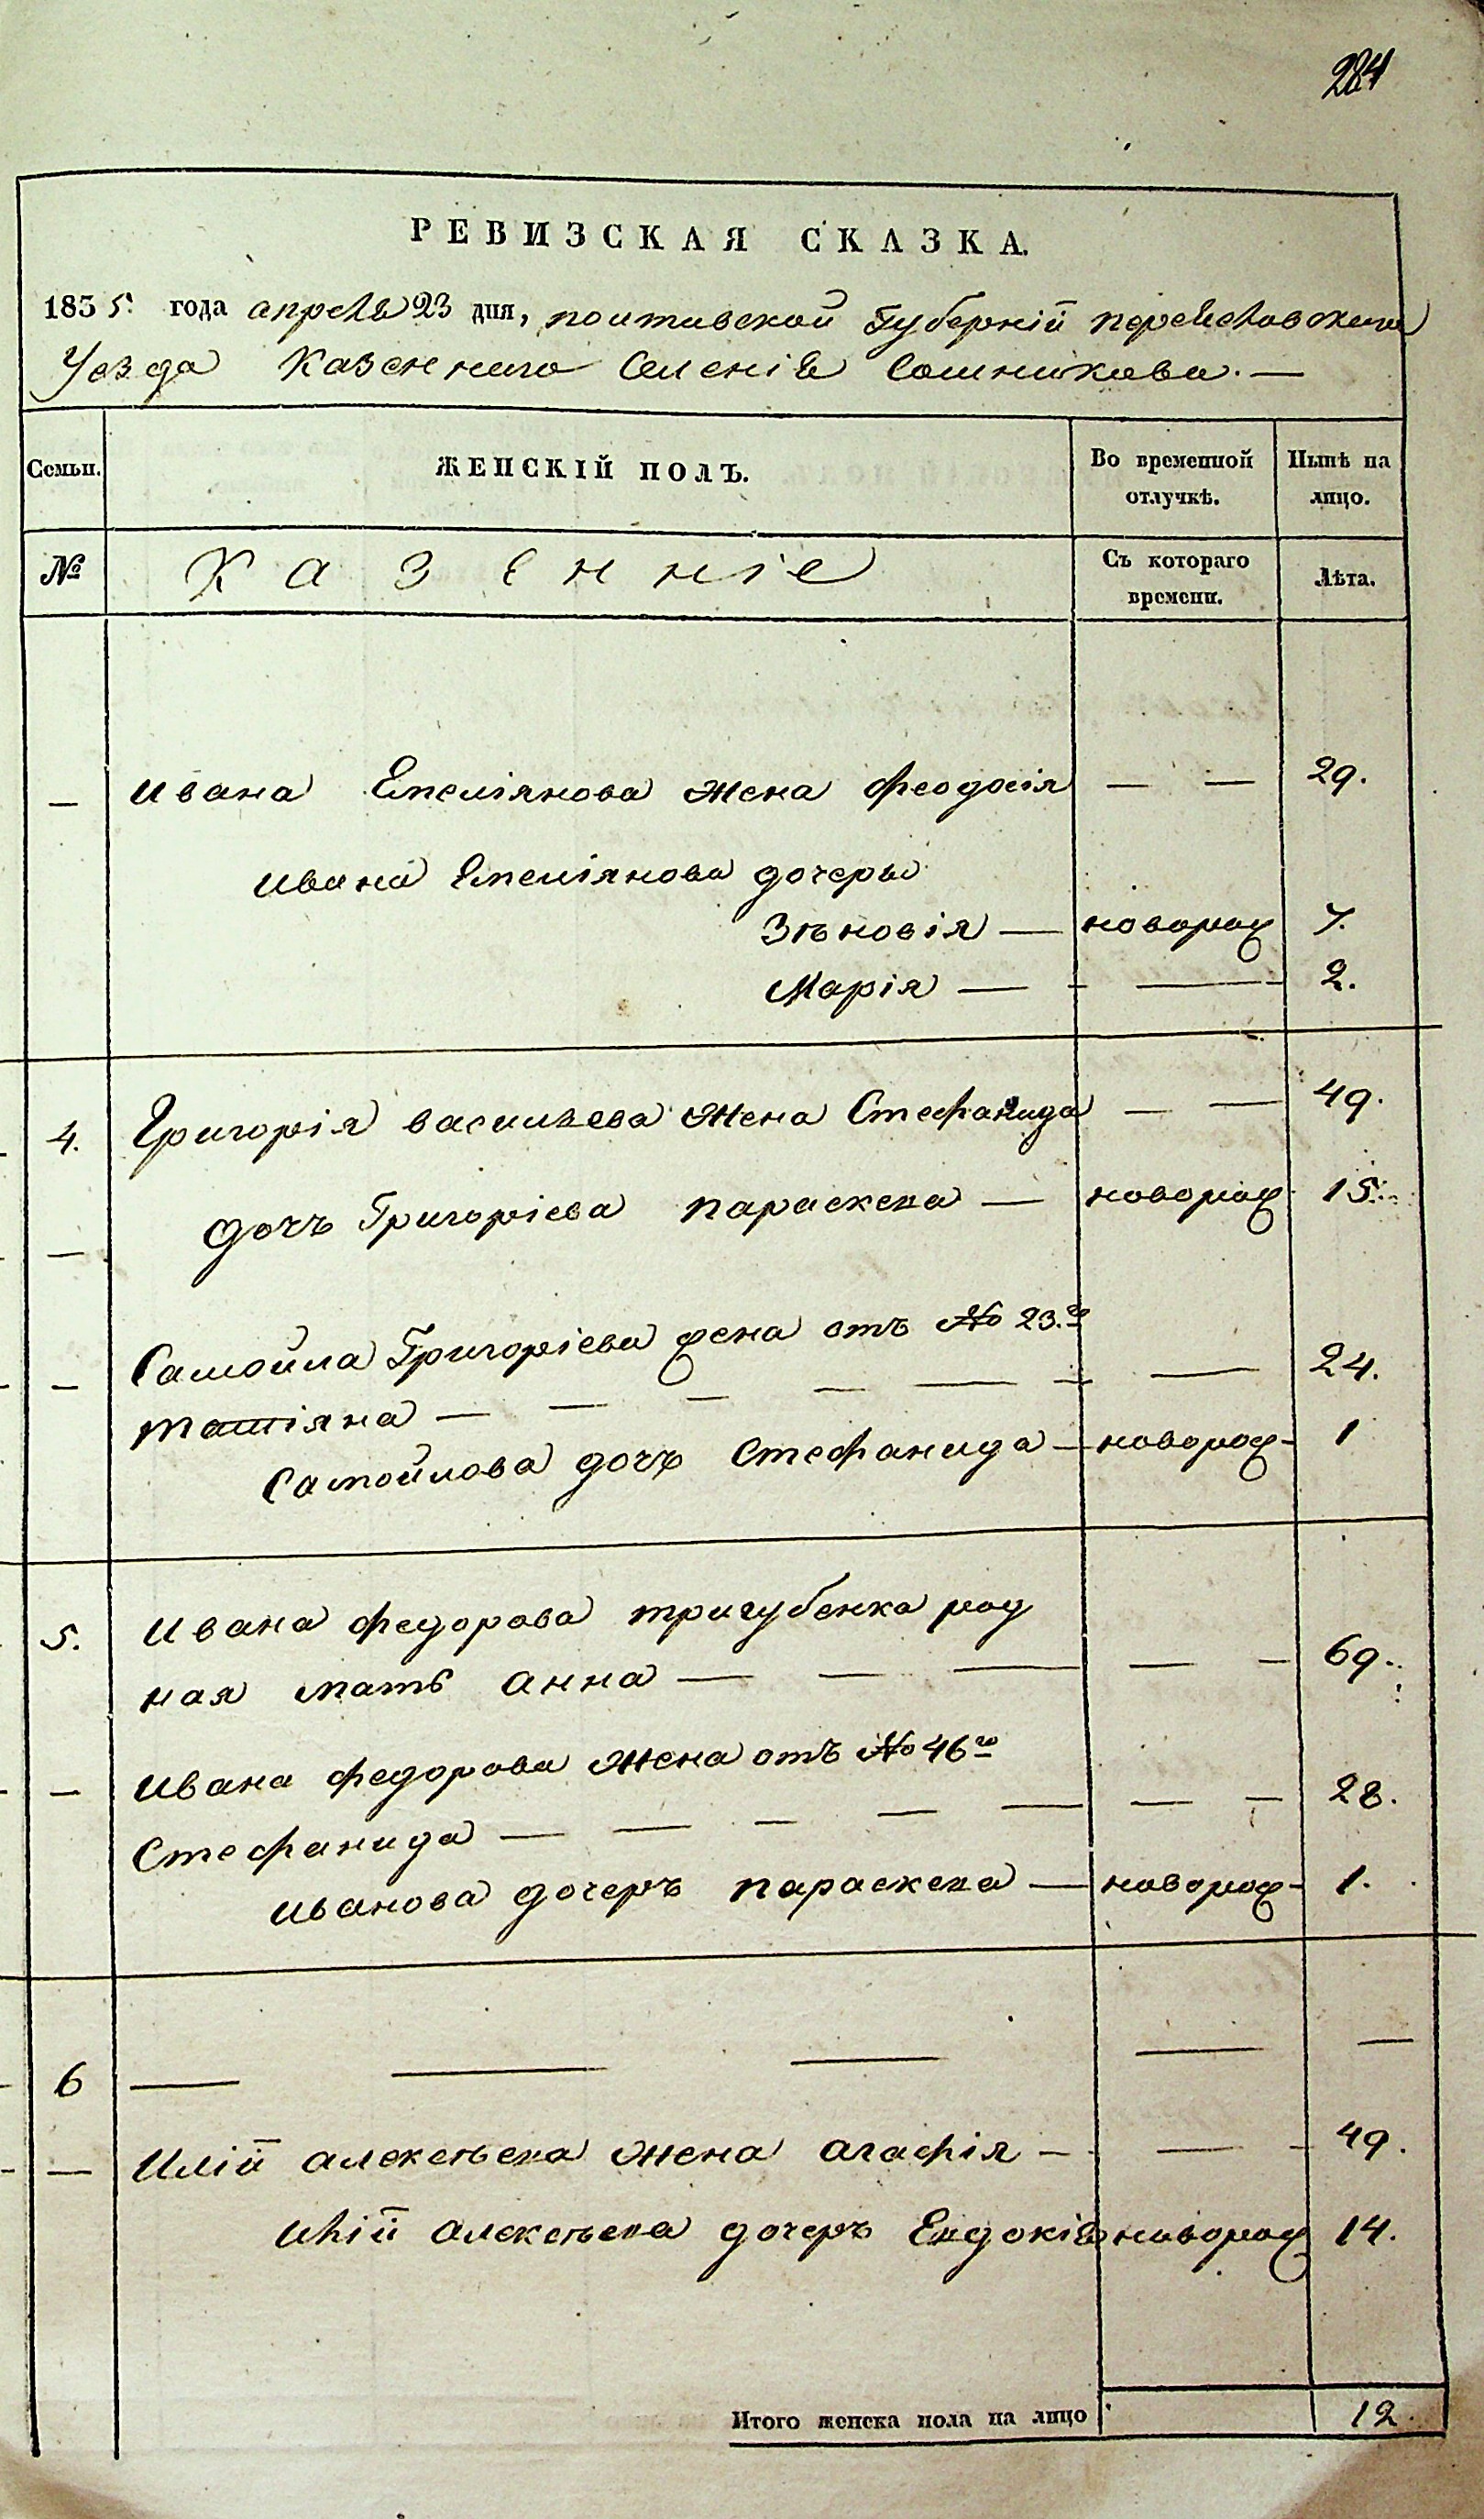 284
РЕВИЗСКАЯ СКАЗКА.
1835. года апреля 23 дня, полтавской Губерніи переясловского
Уезда Казенного Селенія Сошникова. —
Семьи. ЖЕНСКІЙ ПОЛЪ. Во временной отлучкѣ. Нынѣ на лицо.
№ Казенніе Съ котораго времени. Лѣта.
— Ивана Емеліянова жена феодосія — — 29.
Ивана Емеліянова дочеры
Зѣновія — новорож 7.
Марія — — 2.
4. Григорія васильева жена Стефанида — — 49.
— дочъ Григоріева параскева — новорож. 15.
— Самойла Григоріева жена отъ № 23.го
татіяна — — — — — — — 24.
Самойлова дочъ Стефанида — новорож - 1
5. Ивана федорова тригубенка род
ная мать анна — — — — — 69.
— Ивана федорова жена отъ № 46го
Стефанида — — — — — — — 28.
иванова дочеръ параскева — новорож - 1.
6 — — — — —
— Иліи алексѣева жена агафія — — - 49.
Иліи алексѣева дочеръ Евдокія новорож 14.
Итого женска пола на лицо 12.